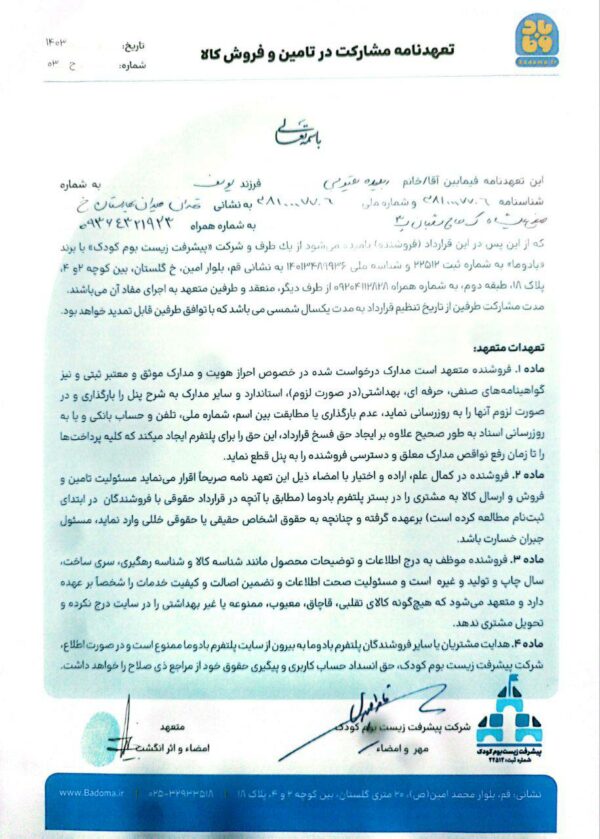 بادوما
Badoma.ir
تعهدنامه مشارکت در تامین و فروش کالا
تاریخ: ۱۴۰۳
شماره: ح ۰۳
باسمه تعالی
این تعهدنامه فیمابین آقا/خانم فرزند یوسف به شماره
شناسنامه و شماره ملی به نشانی
به شماره همراه ۰۹۳۶۴۳۲۱۹۲۳
که از این پس در این قرارداد (فروشنده) نامیده می‌شود از یک طرف و شرکت «پیشرفت زیست بوم کودک» با برند
«بادوما» به شماره ثبت ۲۲۵۱۲ و شناسه ملی ۱۴۰۱۳۴۸۱۹۳۶ به نشانی قم، بلوار امین، خ گلستان، بین کوچه ۲ و ۴،
پلاک ۱۸، طبقه دوم، به شماره همراه ۰۹۲۰۴۱۱۲۸۱۲۸ از طرف دیگر، منعقد و طرفین متعهد به اجرای مفاد آن می‌باشند.
مدت مشارکت طرفین از تاریخ تنظیم قرارداد به مدت یکسال شمسی می باشد که با توافق طرفین قابل تمدید خواهد بود.
تعهدات متعهد:
ماده ۱. فروشنده متعهد است مدارک درخواست شده در خصوص احراز هویت و مدارک موثق و معتبر ثبتی و نیز
گواهینامه‌های صنفی، حرفه ای، بهداشتی(در صورت لزوم)، استاندارد و سایر مدارک به شرح پنل را بارگذاری و در
صورت لزوم آنها را به روزرسانی نماید، عدم بارگذاری یا مطابقت بین اسم، شماره ملی، تلفن و حساب بانکی و یا به
روزرسانی اسناد به طور صحیح علاوه بر ایجاد حق فسخ قرارداد، این حق را برای پلتفرم ایجاد میکند که کلیه پرداخت‌ها
را تا زمان رفع نواقص مدارک معلق و دسترسی فروشنده را به پنل قطع نماید.
ماده ۲. فروشنده در کمال علم، اراده و اختیار با امضاء ذیل این تعهد نامه صریحاً اقرار می‌نماید مسئولیت تامین و
فروش و ارسال کالا به مشتری را در بستر پلتفرم بادوما (مطابق با آنچه در قرارداد حقوقی با فروشندگان در ابتدای
ثبت‌نام مطالعه کرده است) برعهده گرفته و چنانچه به حقوق اشخاص حقیقی یا حقوقی خللی وارد نماید، مسئول
جبران خسارت باشد.
ماده ۳. فروشنده موظف به درج اطلاعات و توضیحات محصول مانند شناسه کالا و شناسه رهگیری، سری ساخت،
سال چاپ و تولید و غیره است و مسئولیت صحت اطلاعات و تضمین اصالت و کیفیت خدمات را شخصاً بر عهده
دارد و متعهد می‌شود که هیچ‌گونه کالای تقلبی، قاچاق، معیوب، ممنوعه یا غیر بهداشتی را در سایت درج نکرده و
تحویل مشتری ندهد.
ماده ۴. هدایت مشتریان یا سایر فروشندگان پلتفرم بادوما به بیرون از سایت پلتفرم بادوما ممنوع است و در صورت اطلاع،
شرکت پیشرفت زیست بوم کودک، حق انسداد حساب کاربری و پیگیری حقوق خود از مراجع ذی صلاح را خواهد داشت.
متعهد
امضاء و اثر انگشت
شرکت پیشرفت زیست بوم کودک
مهر و امضاء
پیشرفت زیست بوم کودک
شماره ثبت: ۲۲۵۱۲
نشانی: قم، بلوار محمد امین(ص)، ۲۰ متری گلستان، بین کوچه ۲ و ۴، پلاک ۱۸ | ۰۲۵-۳۲۹۳۳۵۱۸ | www.Badoma.ir